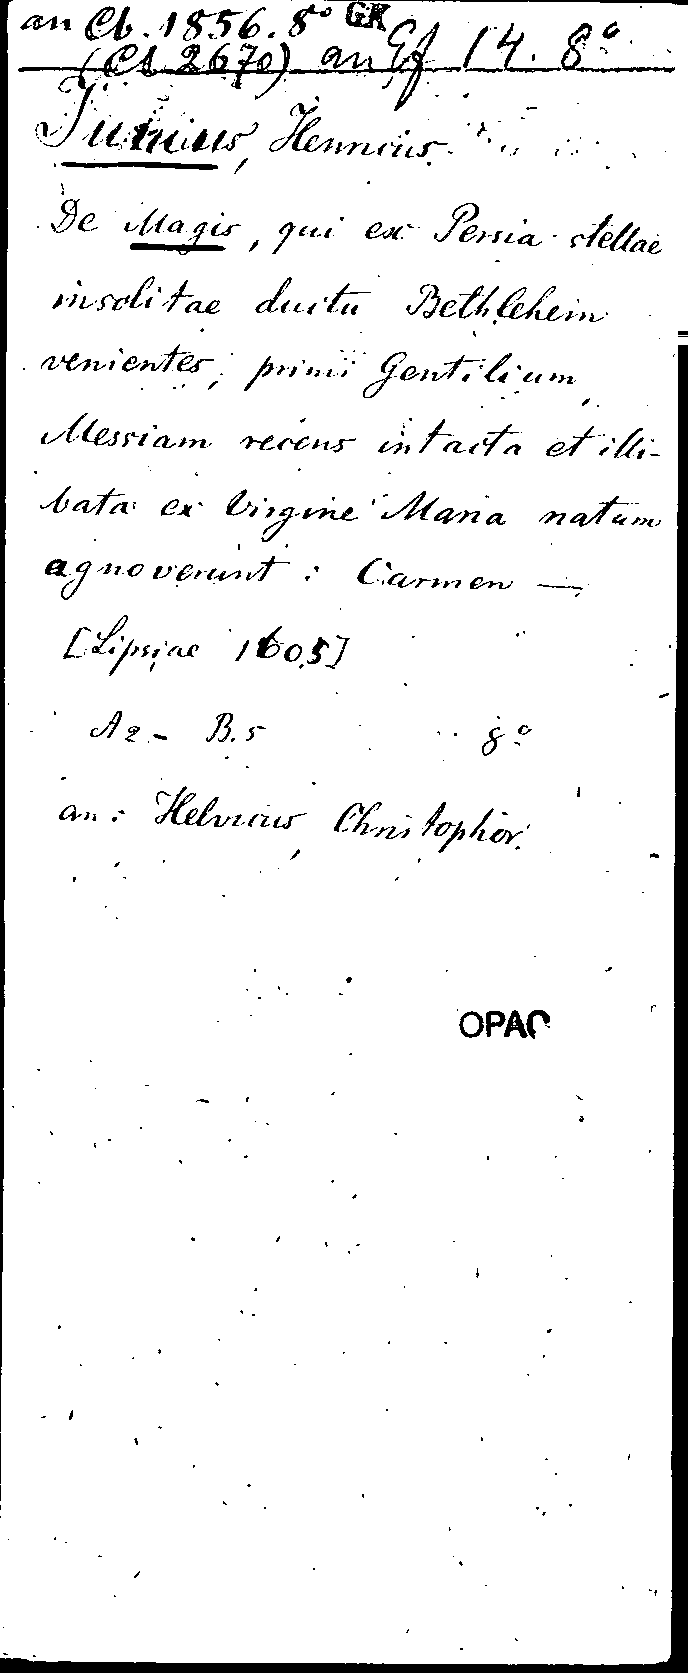 an Cb. 1856. 8° GK
(Cb 2670) an Gf 14. 8°
Junius, Henricus.
De Magis, qui ex Persia stellae
insolitae ductu Bethlehem
venientes, primi Gentilium,
Messiam recens intacta et illi-
bata ex Virgine Maria natum
agnoverunt: Carmen —
[Lipsiae 1605]
A2 - B.5 8°
an: Helvicus, Christophor.
OPAC